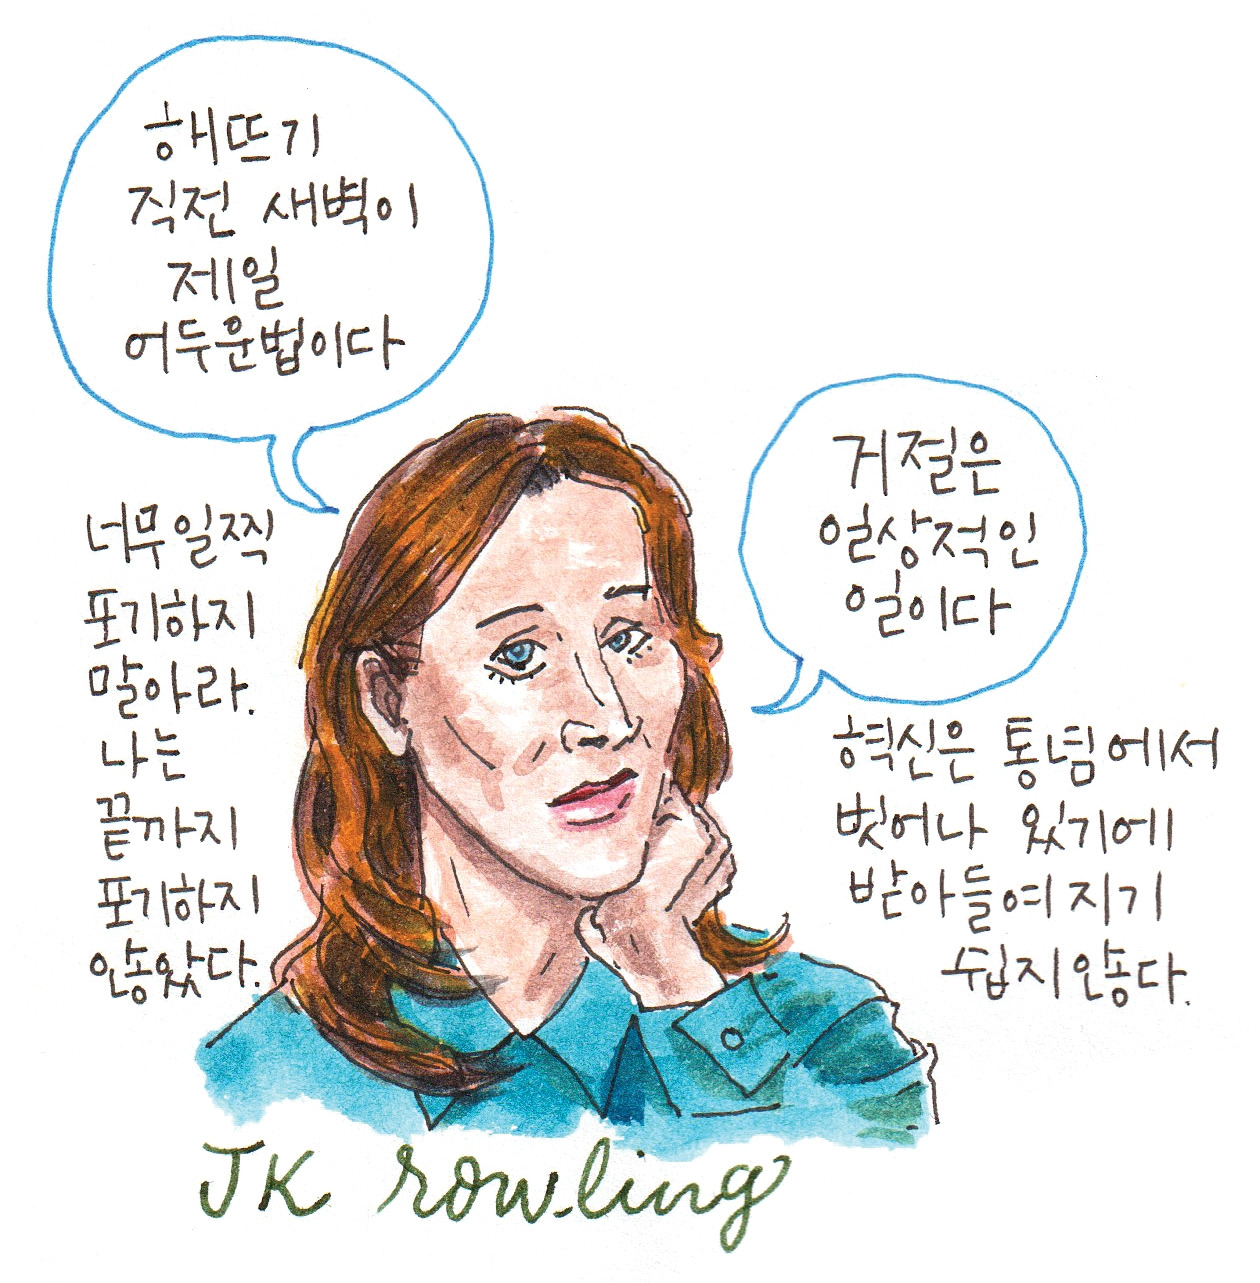 해뜨기
직전 새벽이
제일
어두운법이다
거절은
일상적인
일이다
너무일찍
포기하지
말아라.
나는
끝까지
포기하지
않았다.
혁신은 통념에서
벗어나 있기에
받아들여지기
쉽지않다.
JK rowling